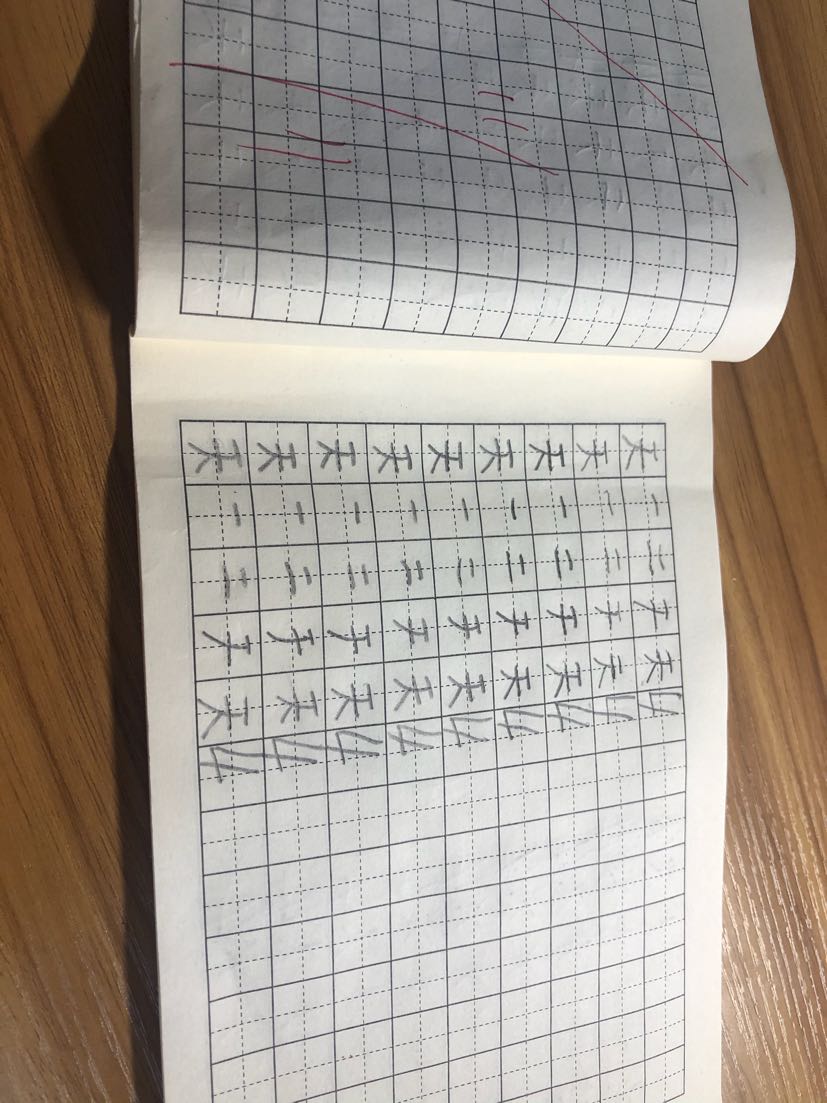 天 天 天 天 天 天 天 天 天
一 一 一 一 一 一 一 一 一
二 二 二 二 二 二 二 二 二
天 天 天 天 天 天 天 天 天
4 4 4 4 4 4 4 4 4